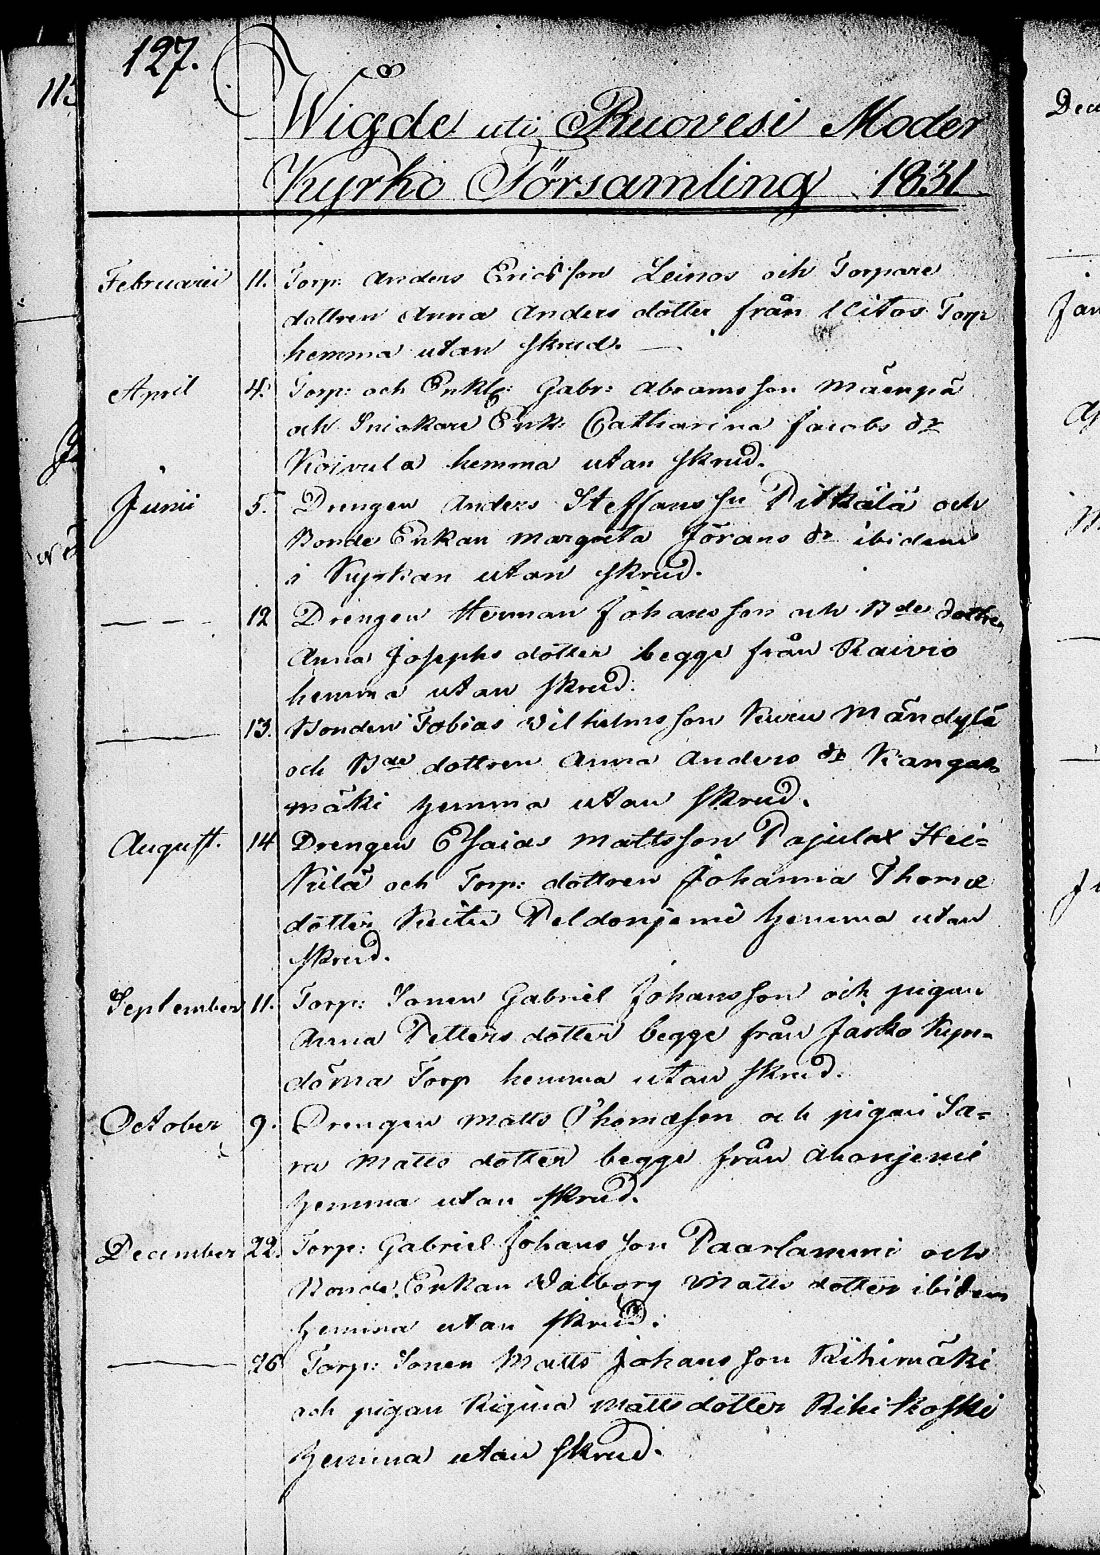 127.
Wigde uti Ruovesi Moder
Kyrko Församling 1831
Februarii 11. Torp: Anders Ericsson Leinos och Torpare
dottren Anna Anders dotter från Torp
hemma utan skrud.
April 4. Torp: och Enkl: Gabr: Abramsson Mäenpä
och Snickare Enk: Catharina Jacobs dr
Koivula hemma utan skrud.
Junii 5. Drengen Anders Steffansson Pitkälä och
Bonde Enkan Margreta Jörans dr ibidem
i Kyrkan utan skrud.
12 Drengen Herman Johansson och Bde dottren
Anna Josephs dotter begge från Raivio
hemma utan skrud.
13. Bonden Tobias Vilhelmsson Kuru Mändylä
och Bde dottren Anna Anders dr Kangas
mäki hemma utan skrud.
August. 14 Drengen Esaias Mattsson Pajulax Hei=
kilä och Torp: dottren Johanna Thomæ
dotter Keitu Peldonjemi hemma utan
skrud.
September 11. Torp: Sonen Gabriel Johansson och pigan
Anna Petters dotter begge från Jäsko Kyn=
döma Torp hemma utan skrud.
October 9. Drengen Matts Thomæson och pigan Sa=
ra Matts dotter begge från Ahonjemi
hemma utan skrud.
December 22. Torp: Gabriel Johansson Paarlammi och
Bonde Enkan Valborg Matts dotter ibidem
hemma utan skrud.
26 Torp: Sonen Matts Johansson Rihimäki
och pigan Regina Matts dotter Rihikoski
hemma utan skrud.